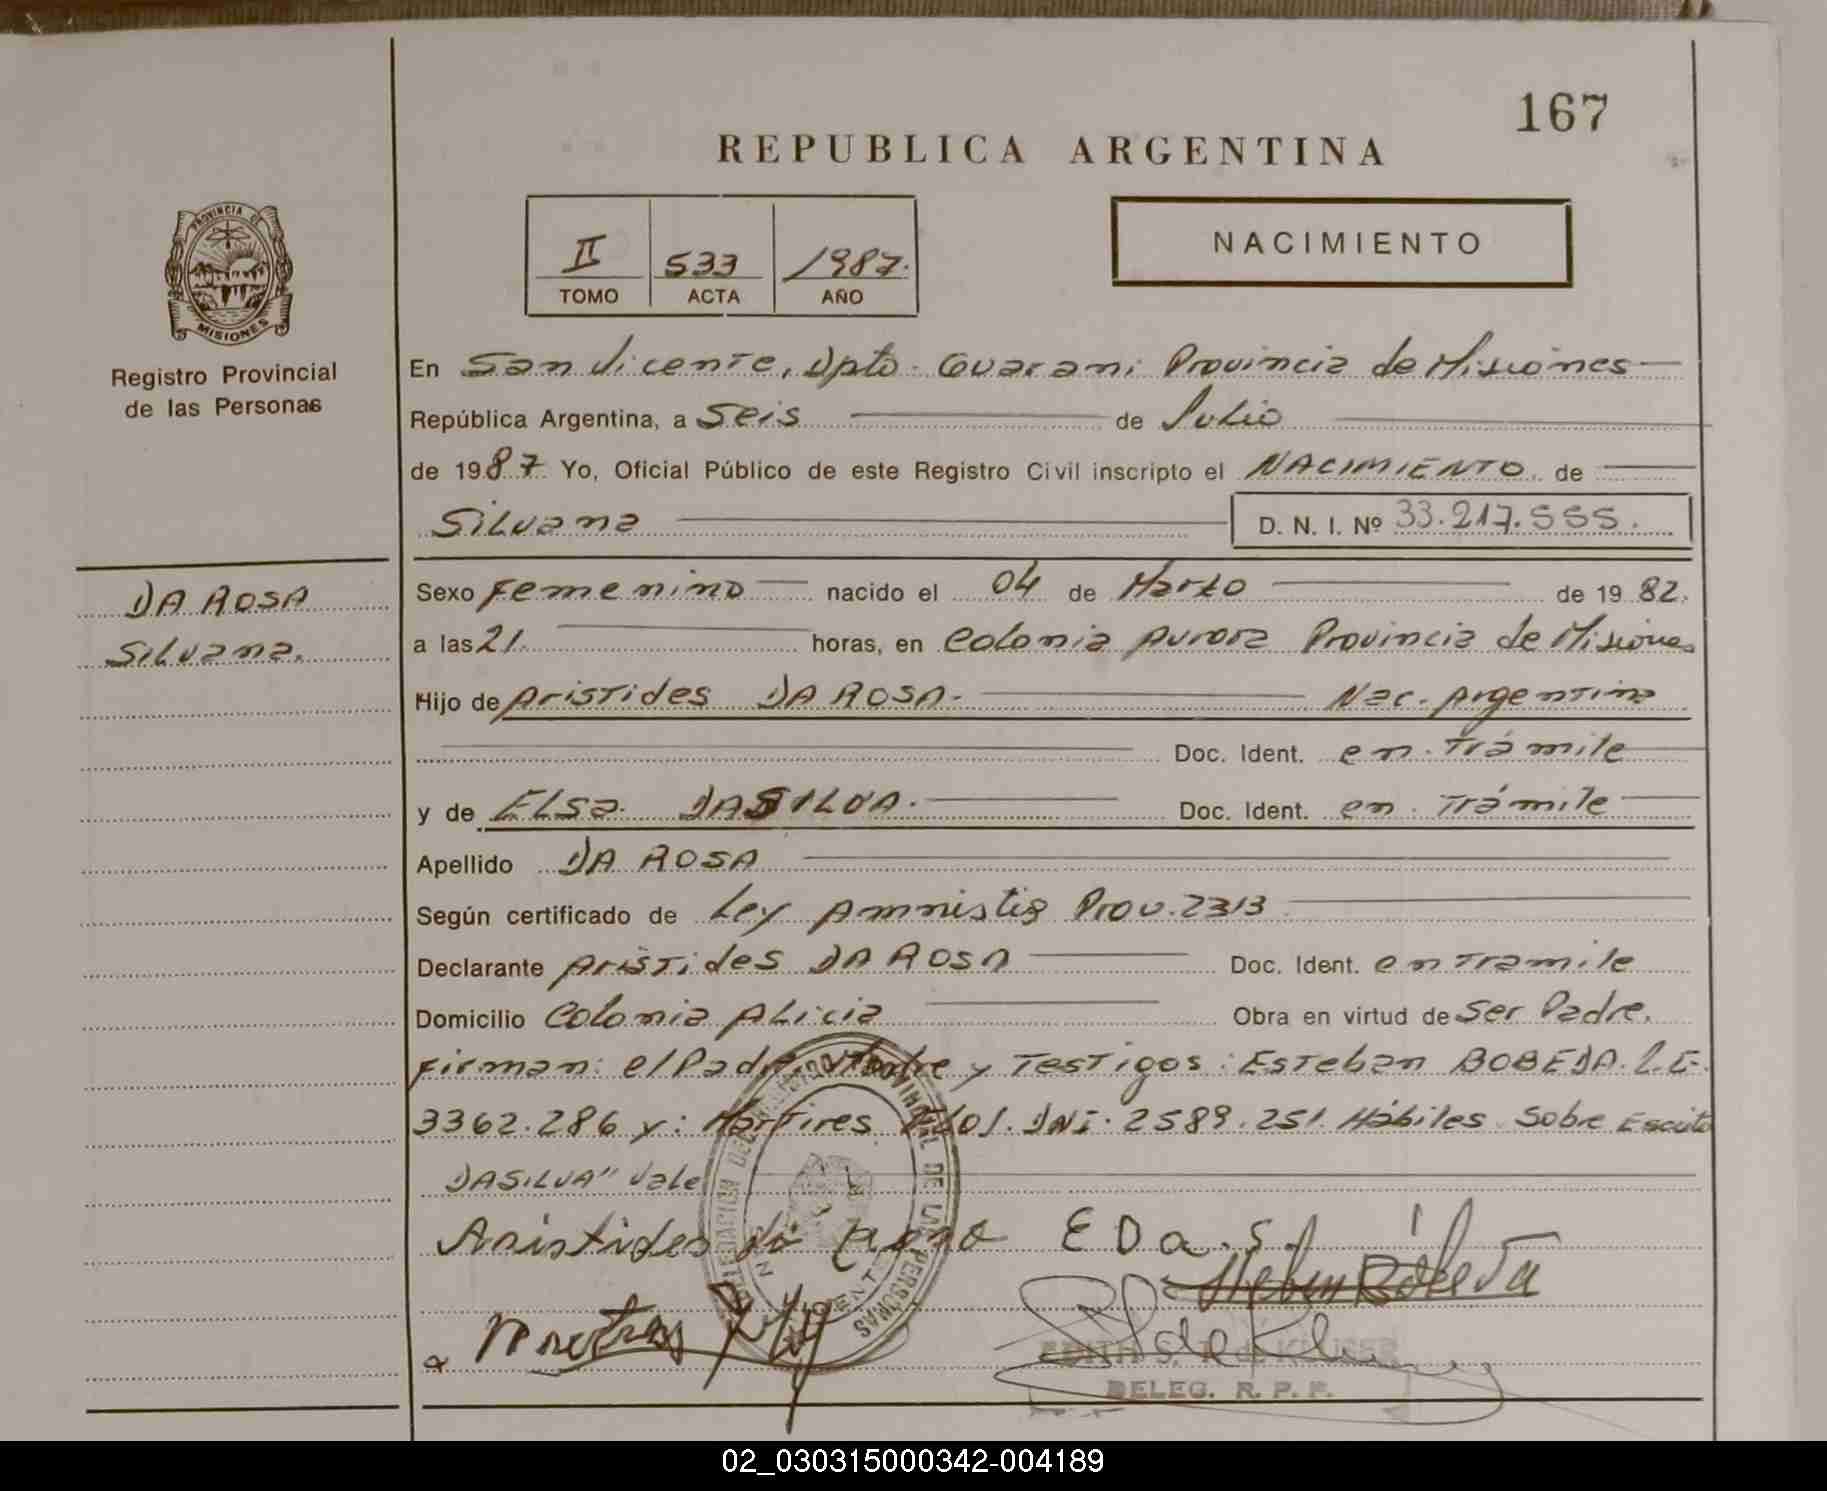 167
REPUBLICA ARGENTINA
II 533 1987.
TOMO ACTA AÑO
NACIMIENTO
PROVINCIA DE
MISIONES
Registro Provincial
de las Personas
En San Vicente, Dpto. Guarani Provincia de Misiones
República Argentina, a Seis de Julio
de 1987 Yo, Oficial Público de este Registro Civil inscripto el NACIMIENTO. de
Silvana D. N. I. Nº 33.217.555.
DA ROSA
Silvana.
Sexo Femenino nacido el 04 de Marzo de 1982.
a las 21. horas, en Colonia Aurora Provincia de Misiones
Hijo de Aristides DA ROSA. Nac. Argentina
Doc. Ident. en Trámite
y de Elsa DASILVA. Doc. Ident. en Trámite
Apellido DA ROSA
Según certificado de Ley Amnistia Prov. 2313
Declarante Aristides DA ROSA Doc. Ident. en Tramite
Domicilio Colonia Alicia Obra en virtud de Ser Padre.
Firman: el Padre, Madre y Testigos: Esteban BOBEDA. L.E.
3362.286 y: Martires DNI. 2589.251. Hábiles. Sobre Escrito
DASILVA" Vale
Aristides da rosa E Da. Sil
DELEGACION DEL REGISTRO PROVINCIAL DE LAS PERSONAS
EDITH S. R. de KLUSSER
DELEG. R. P. P.
02_030315000342-004189